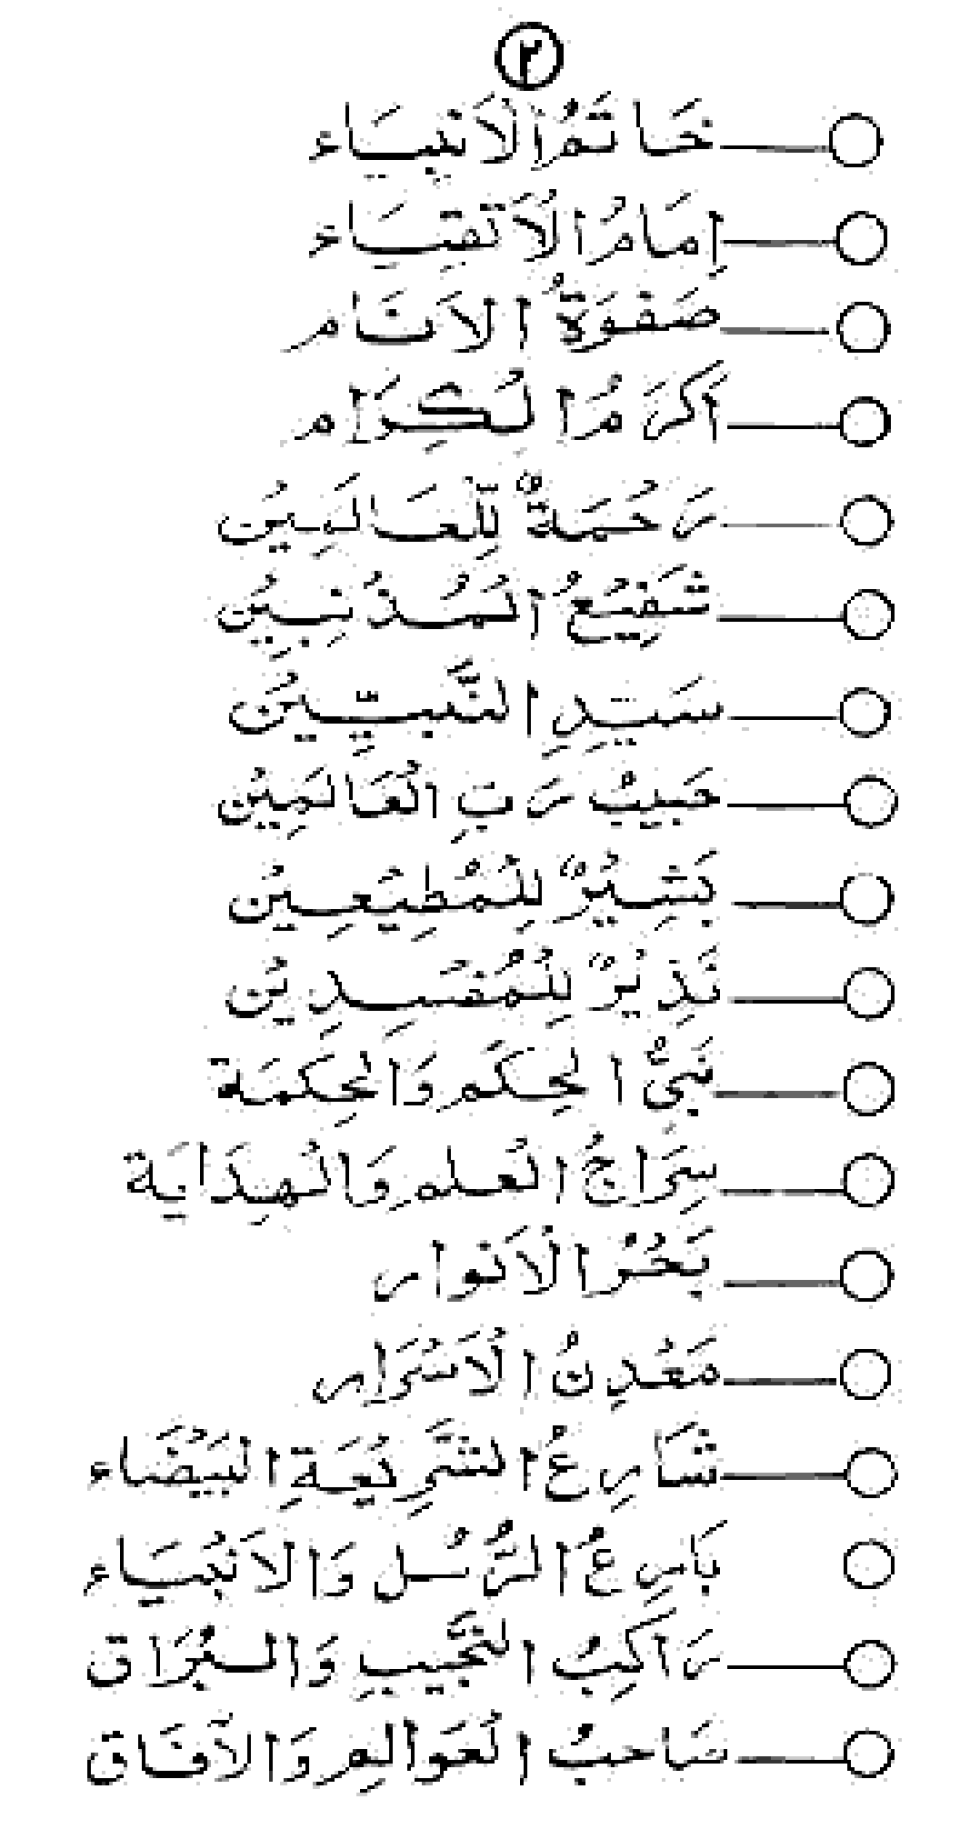 ٢
خَاتَمُ الْاَنْبِيَاء
اِمَامُ الْاَتْقِيَاء
صَفْوَةُ الْاَنَام
اَكْرَمُ الْكِرَام
رَحْمَةٌ لِّلْعَالَمِيْن
شَفِيْعُ الْمُذْنِبِيْن
سَيِّدِ النَّبِيِّيْن
حَبِيْبُ رَبِّ الْعَالَمِيْن
بَشِيْرٌ لِلْمُطِيْعِيْن
نَذِيْرٌ لِلْمُفْسِدِيْن
نَبِيُّ الْحِكَمِ وَالْحِكْمَة
سِرَاجُ الْعِلْمِ وَالْهِدَايَة
بَحْرُ الْاَنْوَار
مَعْدِنُ الْاَسْرَار
شَارِعُ الشَّرِيْعَةِ الْبَيْضَاء
بَارِعُ الرُّسُلِ وَالْاَنْبِيَاء
رَاكِبُ النَّجِيْبِ وَالْبُرَاق
صَاحِبُ الْعَوَالِمِ وَالْآفَاق